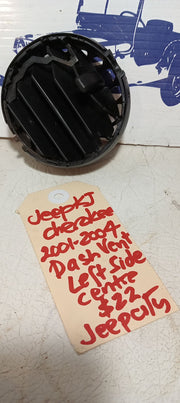 JeepKJ
cherokee
2001-2004
Dash Vent
Left side
centre
$22
Jeepcity